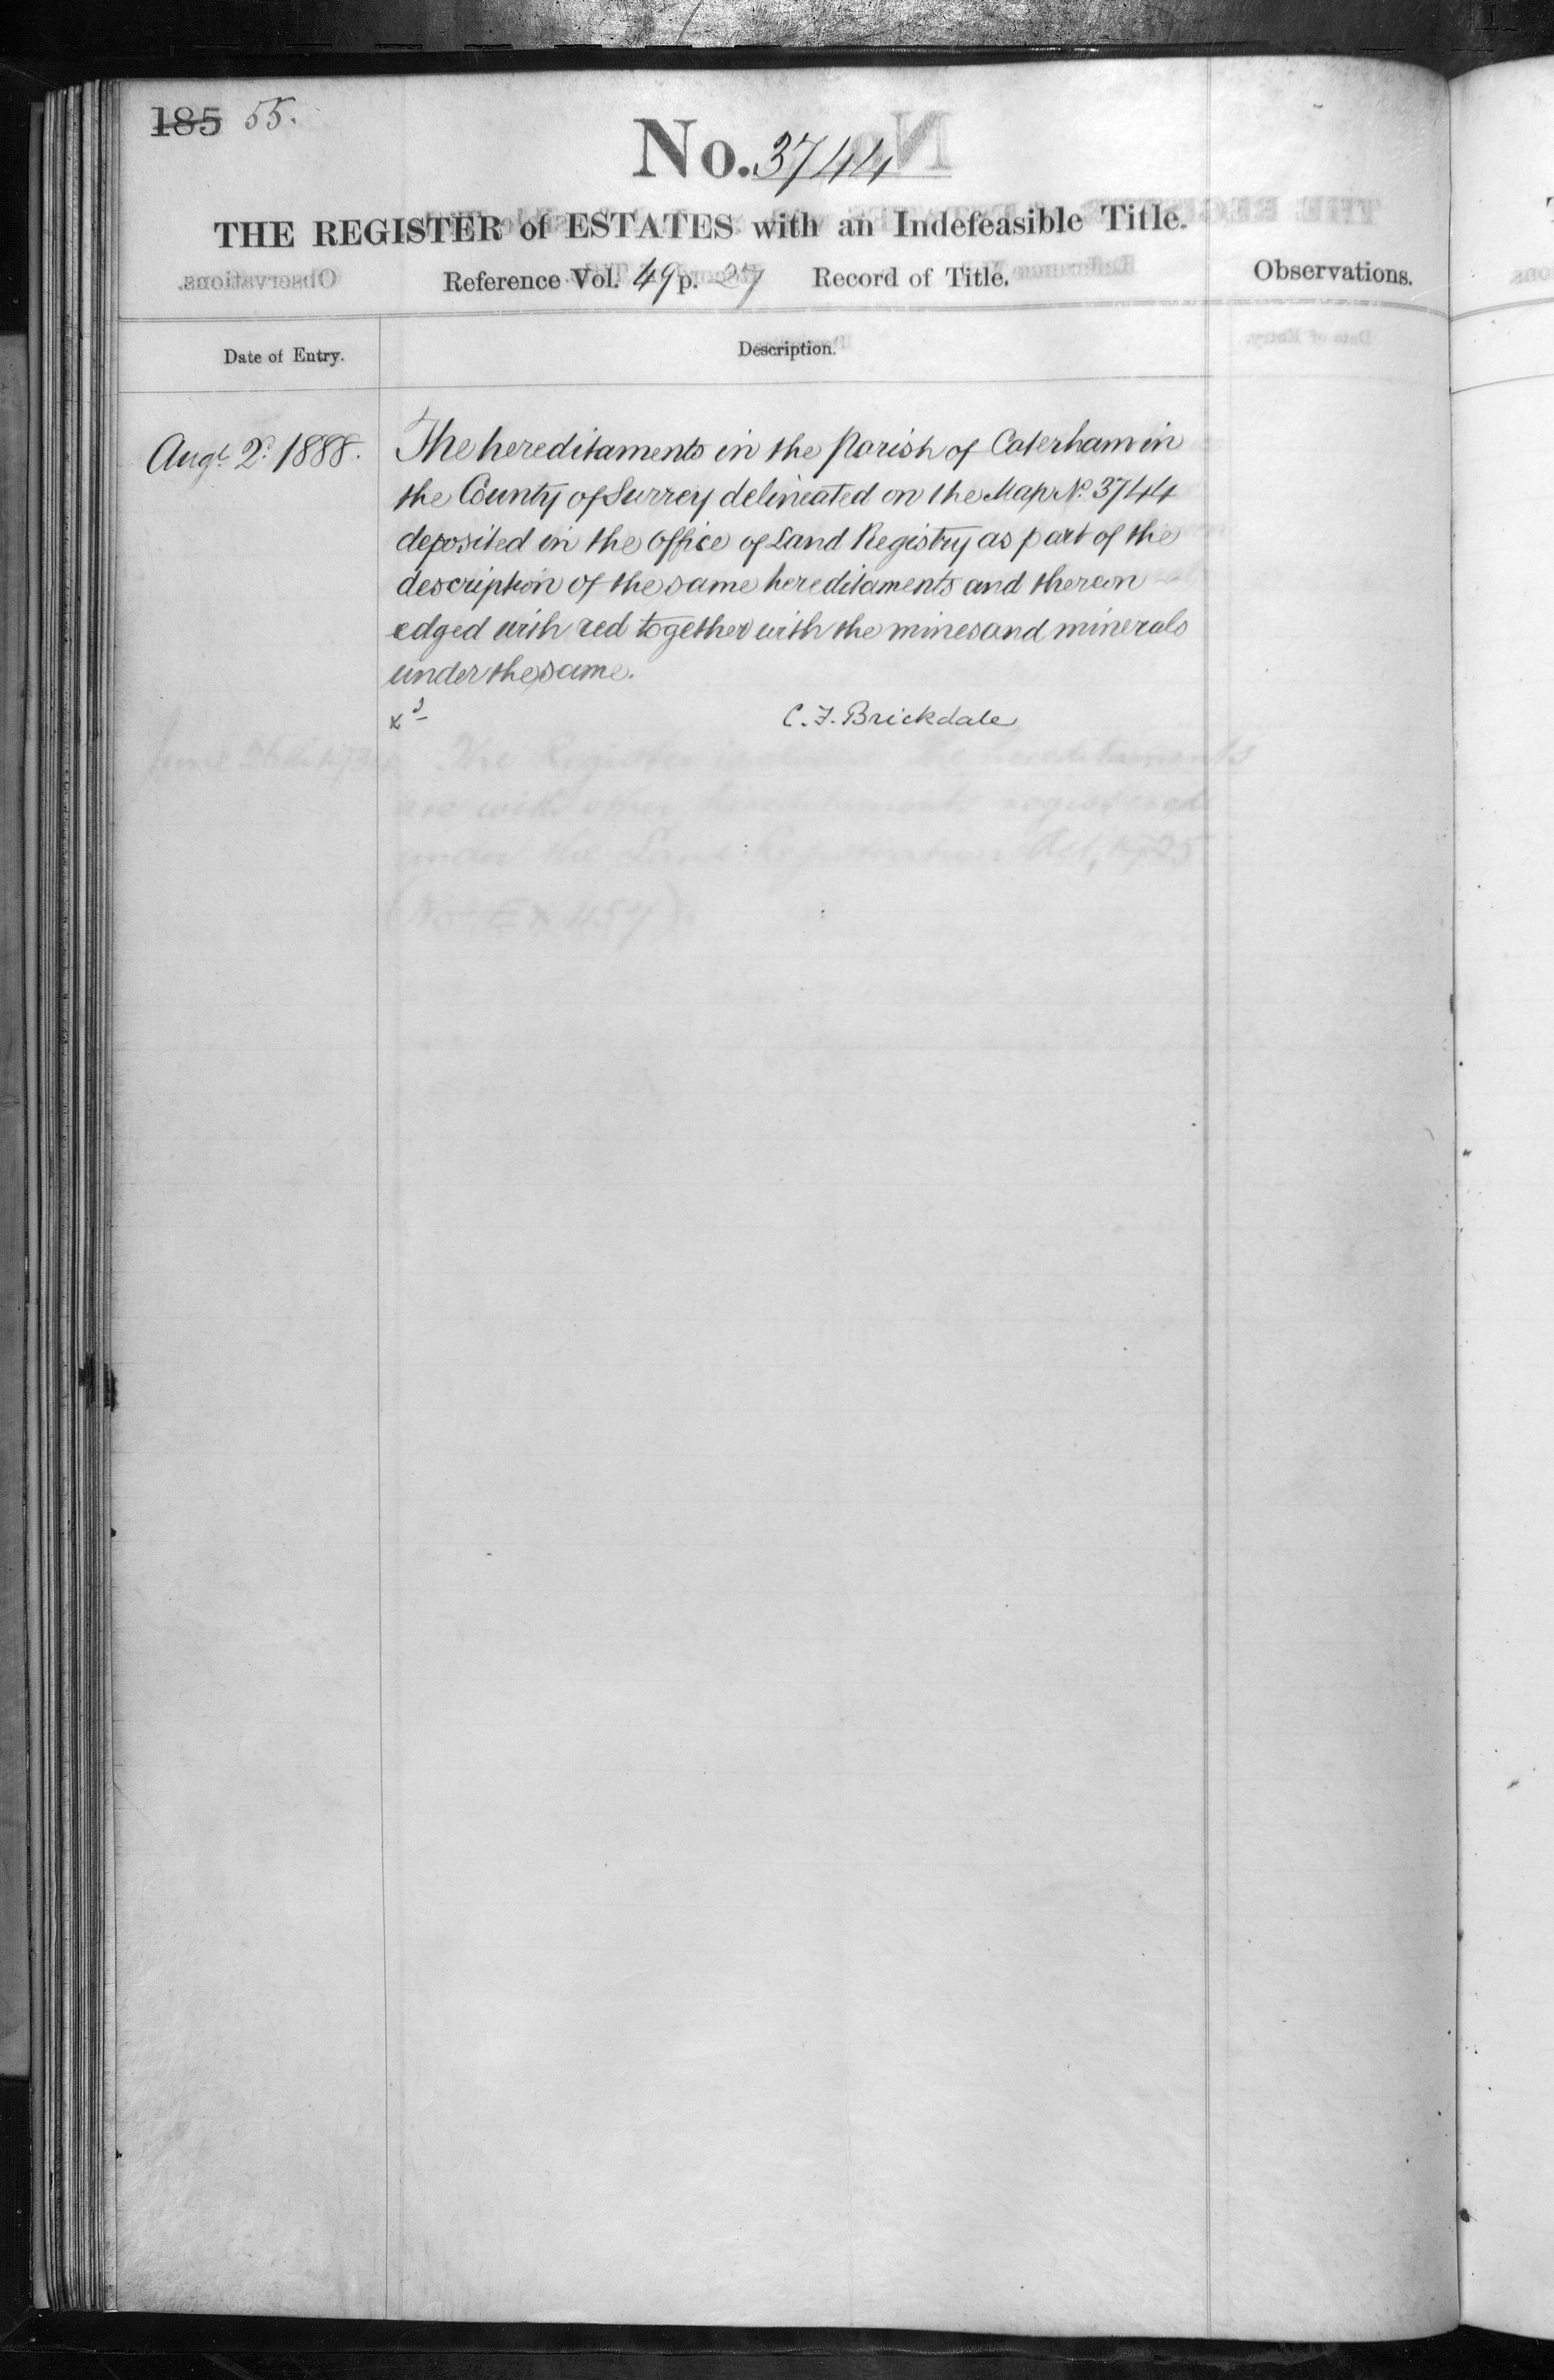 185 55.
No. 3744
THE REGISTER of ESTATES with an Indefeasible Title.
Reference Vol. 49 p. 27 Record of Title.
Observations.
Date of Entry.
Description.
Augt. 2d. 1888.
The hereditaments in the Parish of Caterham in
the County of Surrey delineated on the Map No. 3744
deposited in the Office of Land Registry as part of the
description of the same hereditaments and thereon
edged with red together with the mines and minerals
under the same.
C. F. Brickdale
The Register hereditaments
are with other hereditaments registered
under the Land Registration Act, 1925